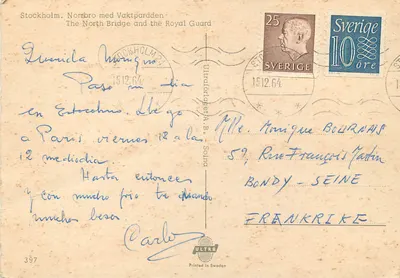 Stockholm. Norrbro med Vaktparaden
The North Bridge and the Royal Guard
25
SVERIGE
SVERIGE
10
ÖRE
STOCKHOLM
15.12.64
15.12.64
Querida Monique
Paso un dia
en Estocolmo. Llego
a Paris viernes 12 a las
12 mediodia
Hasta entonces
y con mucho frio te mando
muchos besos
Carlos
Mlle. Monique BOURNAS
59, Rue François Martin
BONDY - SEINE
FRANKRIKE
ULTRA
Printed in Sweden
397